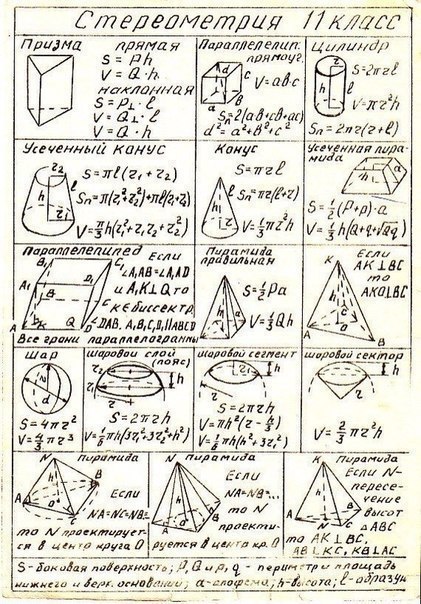 Стереометрия 11 класс
Призма прямая
S = Ph
V = Q·h
наклонная
S = P⊥·l
V = Q⊥·l
V = Q·h
Параллелепип.
прямоуг.
V = abc
Sп=2(ab+cb+ac)
d² = a²+b²+c²
Цилиндр
S=2πrl
V=πr²h
Sп=2πr(r+l)
Усеченный конус
S=πl(r₁+r₂)
Sп=π(r₁²+r₂²)+πl(r₁+r₂)
V=π/3 h(r₁²+r₁r₂+r₂²)
Конус
S=πrl
Sп=πr(l+r)
V=1/3 πr²h
Усеченная пирамида
S=1/2(P+p)·a
V=1/3 h(Q+q+√Qq)
Параллелепипед
Если
∠A₁AB=∠A₁AD
и A₁K⊥Q то
K∈биссектр.
∠DAB. A₁B₁C₁D₁||ABCD
Все грани параллелограммы
Пирамида
правильная
S=1/2 Pa
V=1/3 Qh
Если
AK⊥BC
то
AKO⊥BC
Шар
S=4πr²
V=4/3 πr³
шаровой слой
(пояс)
S=2πrh
V=1/6 πh(3r₁²+3r₂²+h²)
шаровой сегмент
S=2πrh
V=πh²(r-h/3)
V=1/6 πh(h²+3r₁²)
шаровой сектор
V=2/3 πr²h
Пирамида
Если
NA=NC=NB=..
то N проектирует-
ся в центр круга O
Пирамида
Если
NA=NB=...
то N
проекти-
руется в центр кр. O
Пирамида
Если N-
пересе-
чение
высот
△ABC
то AK⊥BC,
AB⊥KC, KB⊥AC
S-боковая поверхность; P,Q и p,q - периметр и площадь
нижнего и верх. оснований; a-апофема; h-высота; l-образующ